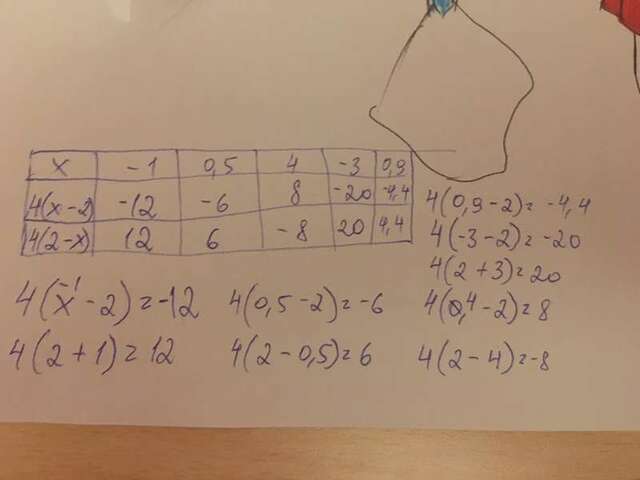 x -1 0,5 4 -3 0,9
4(x-2) -12 -6 8 -20 -4,4
4(2-x) 12 6 -8 20 4,4
4(0,9-2)= -4,4
4(-3-2)=-20
4(2+3)=20
4(x-2)=-12 4(0,5-2)=-6 4(4-2)=8
-1
4(2+1)=12 4(2-0,5)=6 4(2-4)=-8